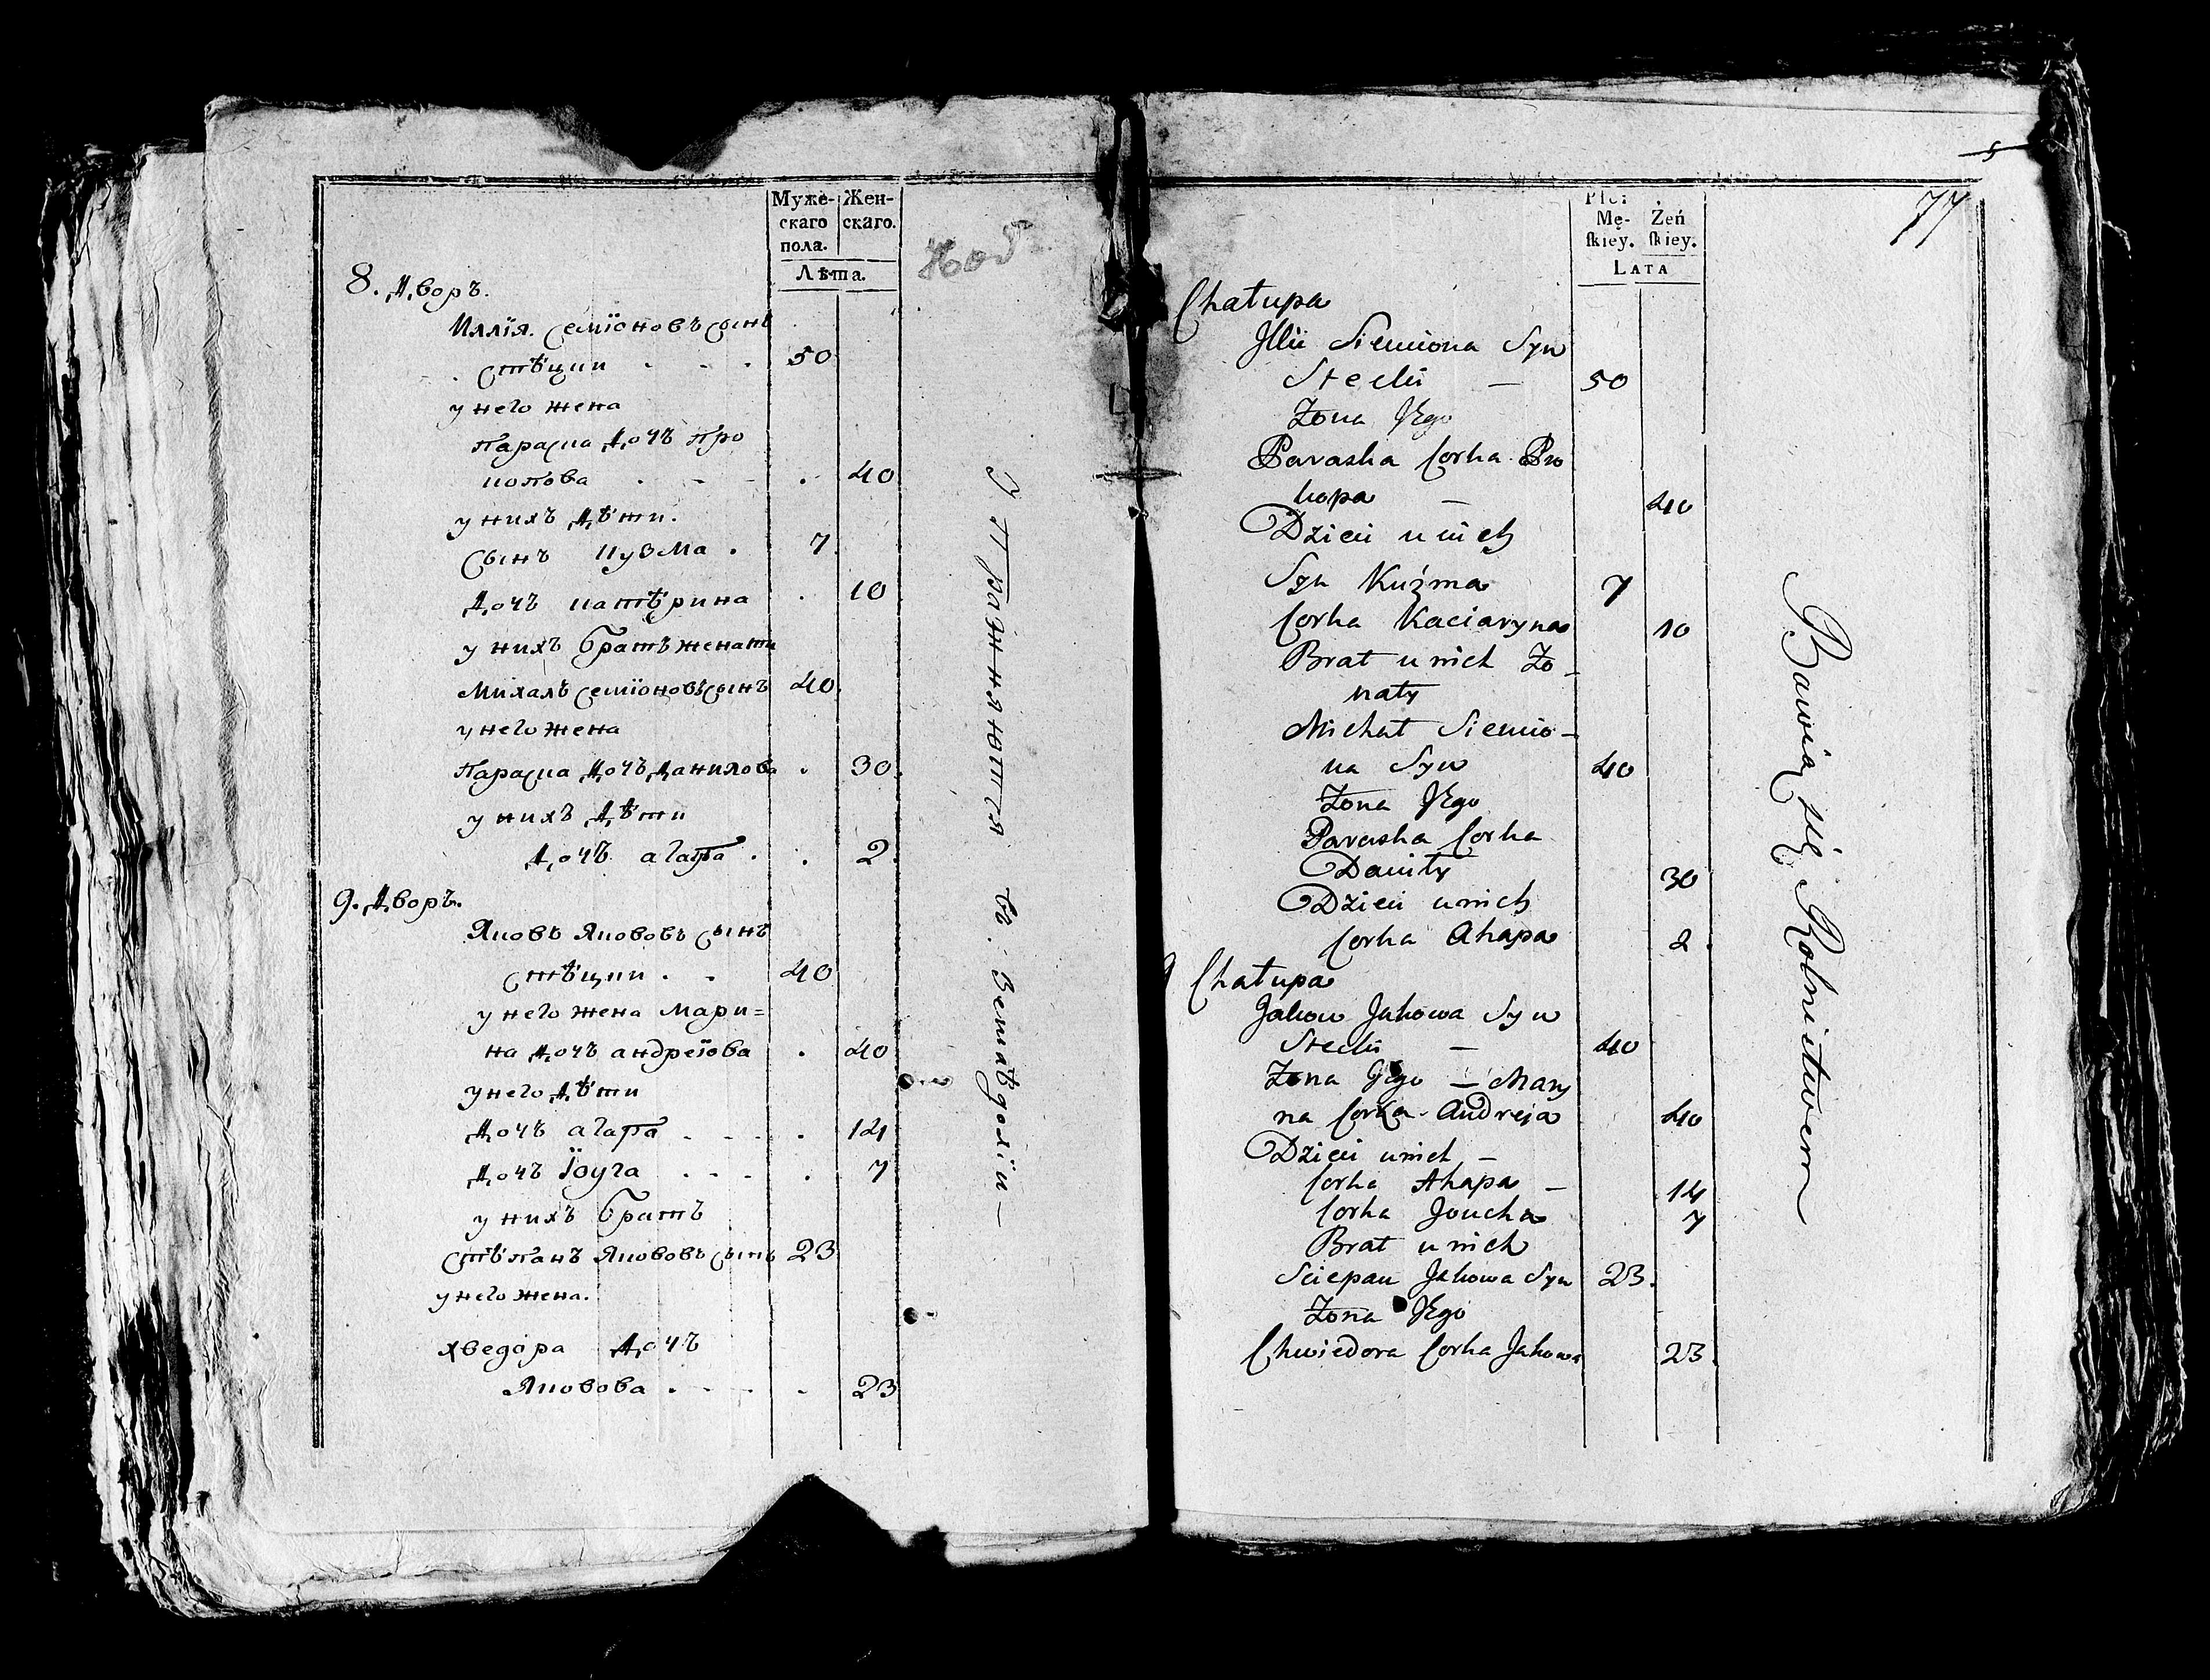 Муже-
скаго
пола.
Жен-
скаго.
Лѣта.
8. Дворъ.
Иллїя. Семїоновъ сынъ
Стѣции . . . 50
у него жена
Параска Дочъ Про
копова . - - . 40
у нихъ Дѣти.
Сынъ Кузма . 7
Дочъ Катѣрина . 10
у нихъ братъ женати
Михалъ Семїоновъ сынъ 40.
у него жена
Параска Дочъ Данилова . 30.
у нихъ Дѣти
Дочъ агапа . . 2.
9. Дворъ.
Яковъ Якововъ сынъ
Стѣцки . . 40
у него жена Мари=
на Дочъ андреїова . 40
у него Дѣти
Дочъ агапа . - - . 14
Дочъ Їоуга . - - . 7
у нихъ братъ
Стѣпанъ Якововъ сынъ 23
у него жена.
хведора Дочъ
Яковова . - - . 23
въ Земледелїи —
77
Płci
Mę-
skiey.
Żeń
skiey.
Lata
Chałupa
Jllii Siemiona Syn
Stecki — 50
Żona Jego
Paraska Corka Pro
kopa — 40
Dzieci u nich
Syn Kuźma 7
Corka Kaciaryna 10
Brat u nich Żo-
naty
Michał Siemio-
na Syn 40
Żona Jego
Paraska Corka
Daniły 30
Dzieci u nich
Corka Ahapa 2.
9 Chałupa
Jakow Jakowa Syn
Stecki — 40
Żona Jego — Mary
na Corka Andreja 40
Dzieci u nich —
Corka Ahapa — 14
Corka Joucha 7
Brat u nich
Sciepan Jakowa Syn 23.
Żona Jego
Chwiedora Corka Jakowa 23
Bawią się Rolnictwem